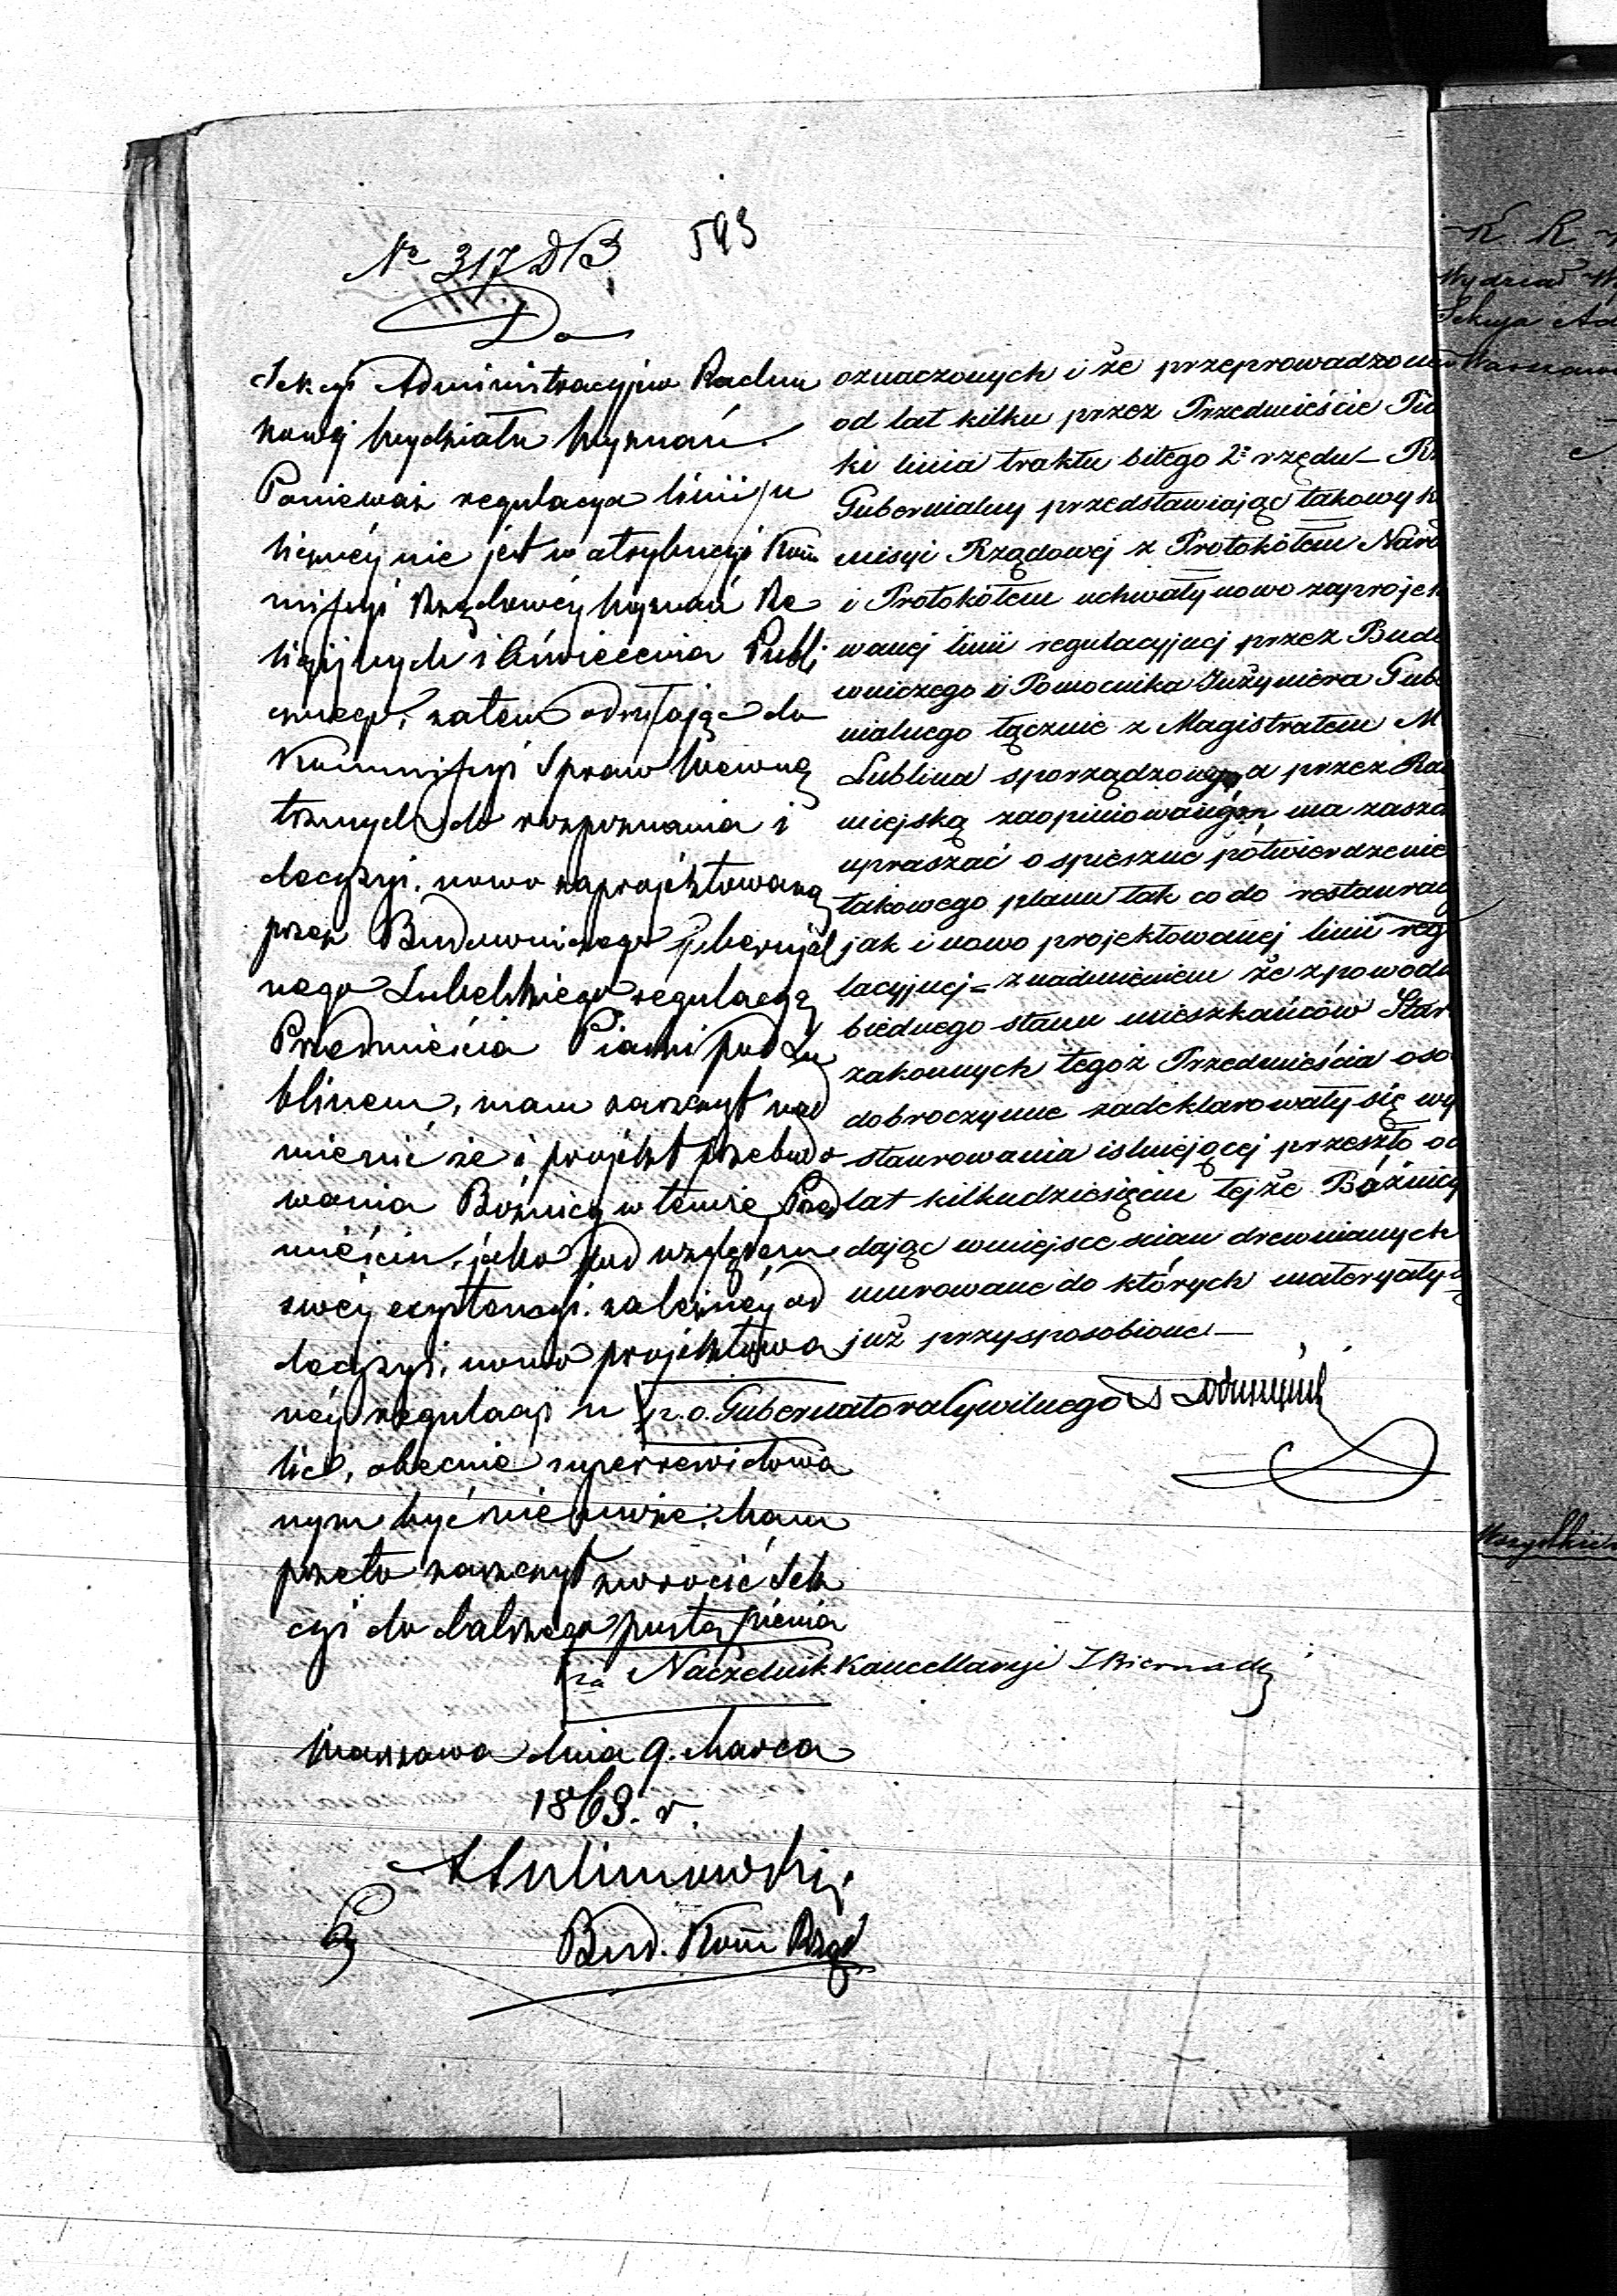 543
№ 317 DB
Do
Sekcyi Administracyjno Rachun
kowej Wydziału Wyznań.
Ponieważ regulacya linii u
liczney nie jest w atrybucyi Kom
missyi Rządowéy Wyznań Re
ligijnych i Oświecenia Publi
cznego, zatem odsyłając do
Kommissyi Spraw Wewnę
trznych do rozpoznania i
decyzyi, nowo zaprojektowaną
przez Budowniczego Gubernijal
nego Lubelskiego regulacyą
Przedmieścia Piaski pod Lu
blinem, mam zaszczyt nad
mienić że i projekt przebudo
wania Bóżnicy w temże Przed
mieściu, jako pod względem
swéy exystencyi zależnéy od
decyzyi, nowo projektowa
néy regulacyi u
lic, obecnie superrewidowa
nym być nie może; Mam
przeto zaszczyt zwrócić Sek
cyi do dalszego postąpienia
Warszawa dnia 9. Marca
1863. r.
Bud. Kom Rząd
oznaczonych i że przeprowadzona
od lat kilku przez Przedmieście Pia
ki linia traktu bitego 2º rzędu – Rz
Gubernialny przedstawiając takowy K
misyi Rządowej z Protokółem Nara
i Protokółem uchwały nowo zaprojek
wanej linii regulacyjnej przez Budo
wniczego i Pomocnika Inżyniera Gube
nialnego łącznie z Magistratem M
Lublina sporządzonym a przez Rad
miejską zaopiniowanym ma zaszcz
upraszać o spieszne potwierdzenie
takowego planu tak co do restauracy
jak i nowo projektowanej linii reg
lacyjnej – z nadmienieniem że z powodu
biednego stanu mieszkańców Star
zakonnych tegoż Przedmieścia oso
dobroczynne zadeklarowały się wy
staurowania istniejącej przeszło od
lat kilkudziesięciu tejże Bóżnicy
dając w miejsce scian drewnianych
murowane do których materyały s
już przysposobione –
p.o. Gubernatora Cywilnego
za Naczelnik Kancellaryi
K. R.
Wydział W
Sekcya Ad
Warszawa